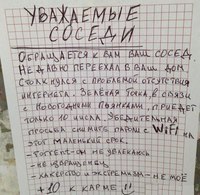 УВАЖАЕМЫЕ
СОСЕДИ
ОБРАЩАЕТСЯ К ВАМ ВАШ СОСЕД.
НЕДАВНО ПЕРЕЕХАЛ В ВАШ ДОМ.
СТОЛКНУЛСЯ С ПРОБЛЕМОЙ ОТСУТСТВИЯ
ИНТЕРНЕТА. ЗЕЛЁНАЯ ТОЧКА, В СВЯЗИ
С НОВОГОДНИМИ ПЬЯНКАМИ, ПРИЕДЕТ
ТОЛЬКО 10 ЧИСЛА. УБЕДИТЕЛЬНАЯ
ПРОСЬБА СНИМИТЕ ПАРОЛЬ С WiFi НА
ЭТОТ МАЛЕНЬКИЙ СРОК.
- TORRENT-ОМ НЕ УВЛЕКАЮСЬ
- НЕ ИЗВРАЩЕНЕЦ
- ХАКЕРСТВО И ЭКСТРЕМИЗМ - НЕ МОЁ
+10 К КАРМЕ !!